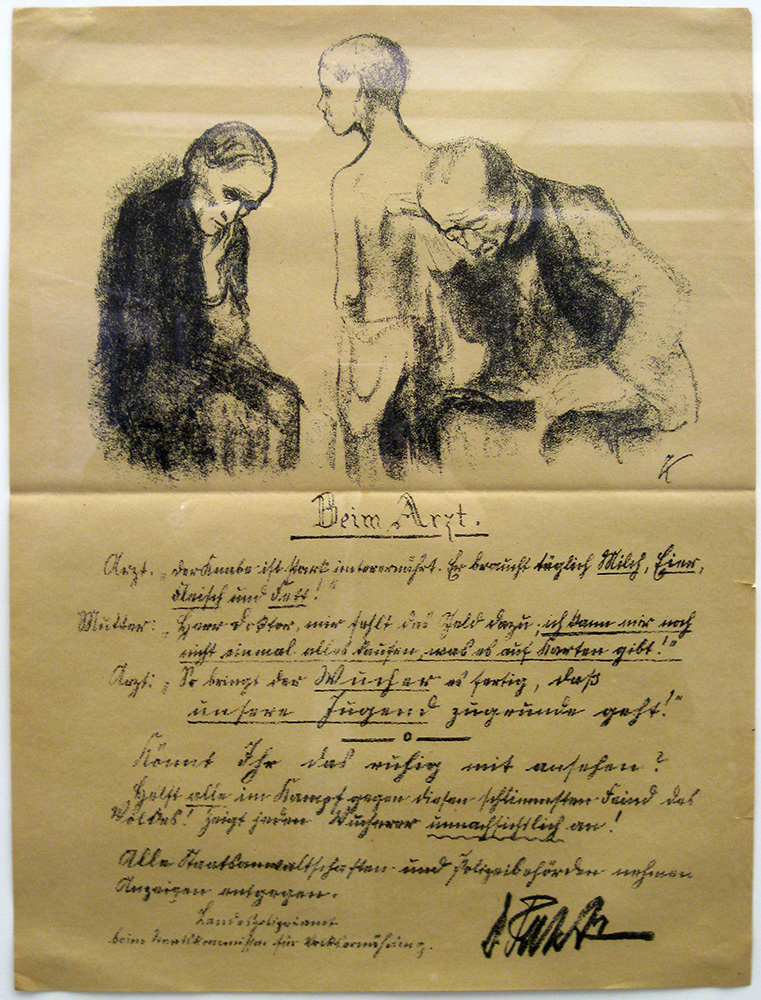 K
Beim Arzt.
Arzt: „Der Knabe ist stark unterernährt. Er braucht täglich Milch, Eier,
Fleisch und Fett!"
Mutter: „Herr Doktor, mir fehlt das Geld dazu, ich kann mir noch
nicht einmal alles kaufen, was es auf Karten gibt!"
Arzt: „So bringt der Wucher es fertig, daß
unsere Jugend zugrunde geht!"
Könnt Ihr das ruhig mit ansehen?
Helft alle im Kampf gegen diesen schlimmsten Feind des
Volkes! Zeigt jeden Wucherer unnachsichtlich an!
Alle Staatsanwaltschaften und Polizeibehörden nehmen
Anzeigen entgegen.
Landespolizeiamt
beim Staatskommissar für Volksernährung.